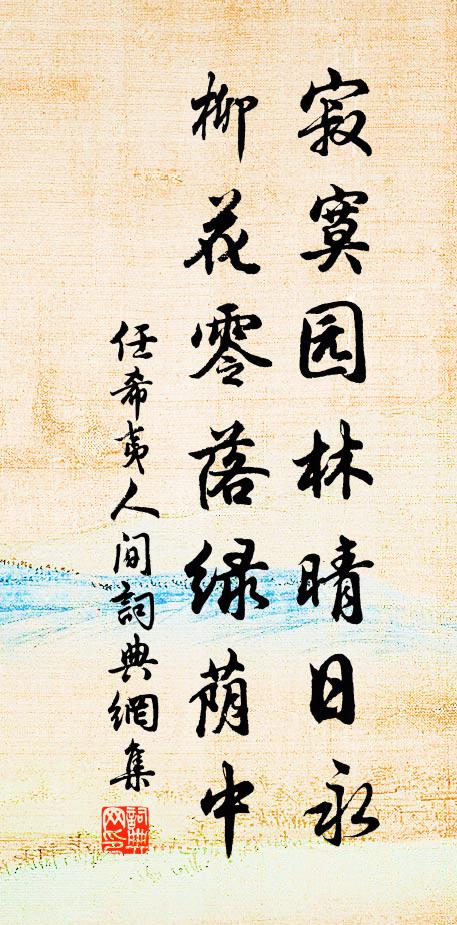 寂寞园林晴日永
柳花零落绿荫中
任希夷人间詞典網集
詞典网印